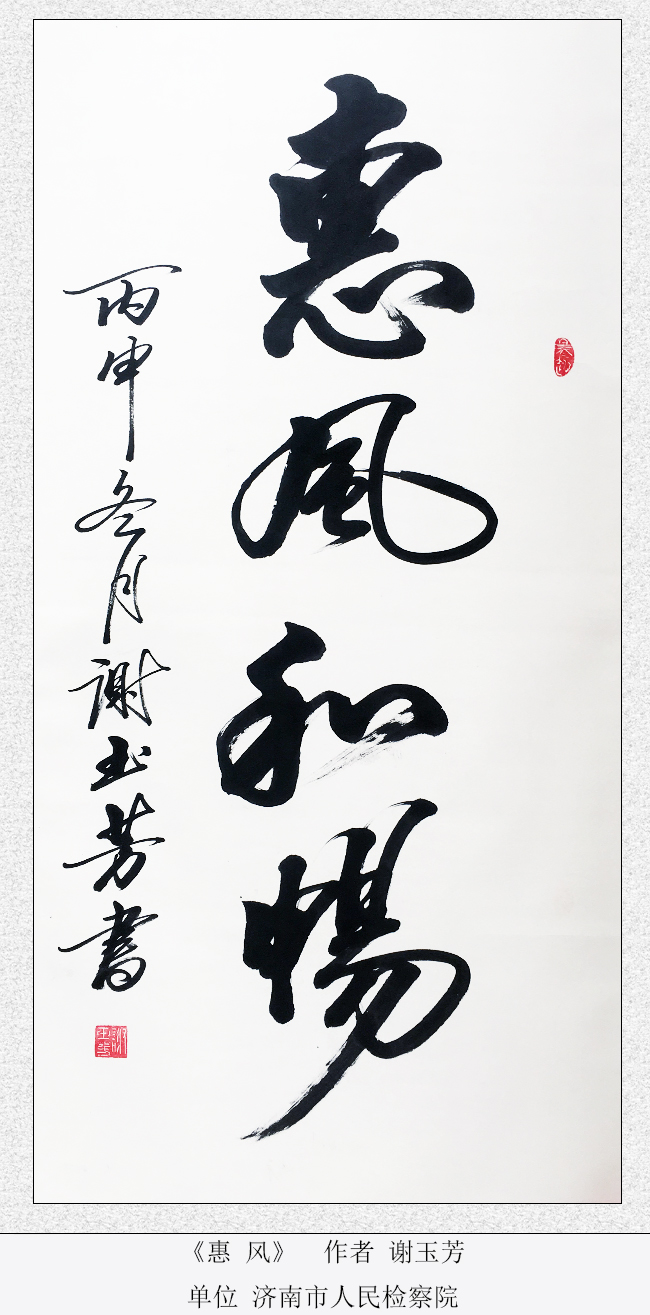 惠風和暢
丙申冬月谢玉芳書
《惠 风》 作者 谢玉芳
单位 济南市人民检察院